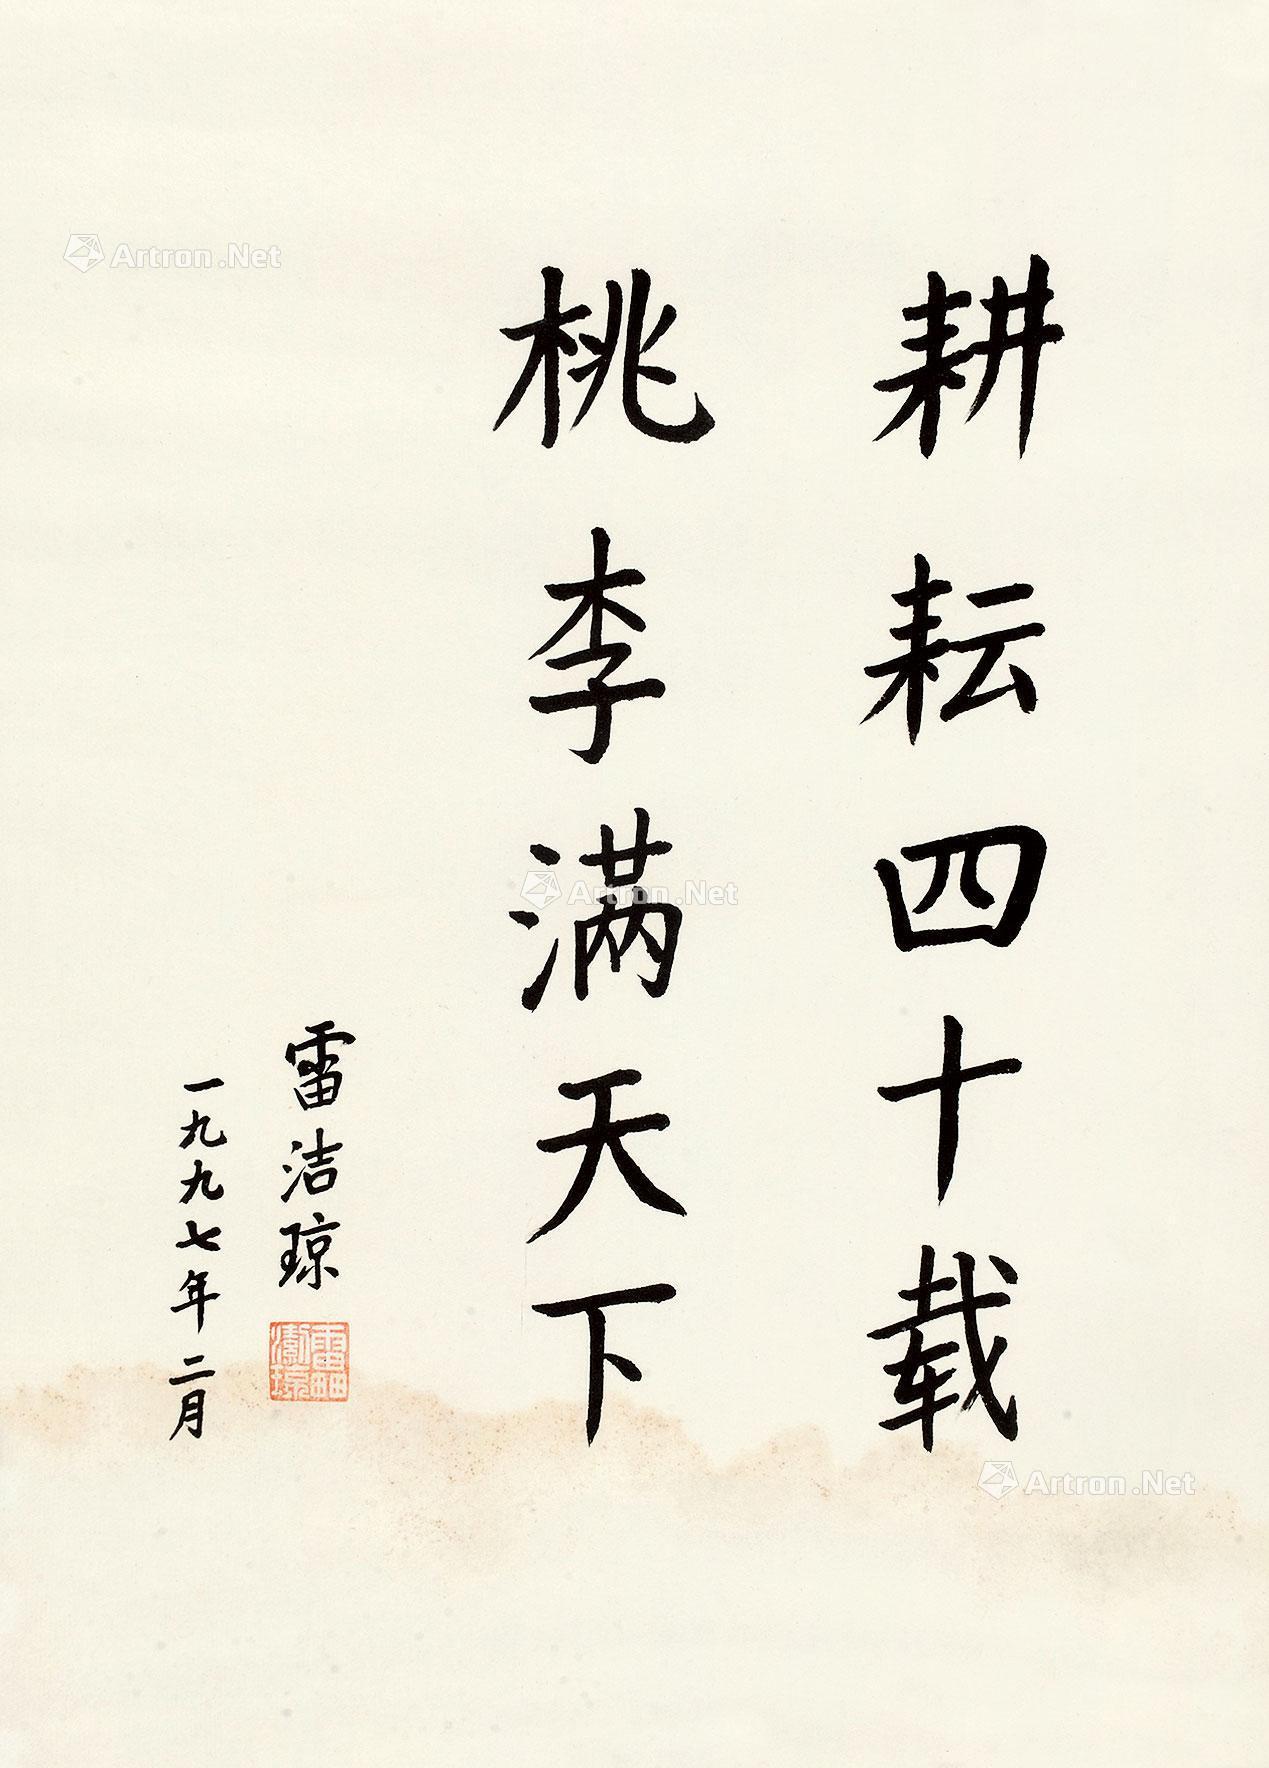 耕耘四十载
桃李满天下
雷洁琼
一九九七年二月
雷洁琼
Artron.Net
Artron.Net
Artron.Net